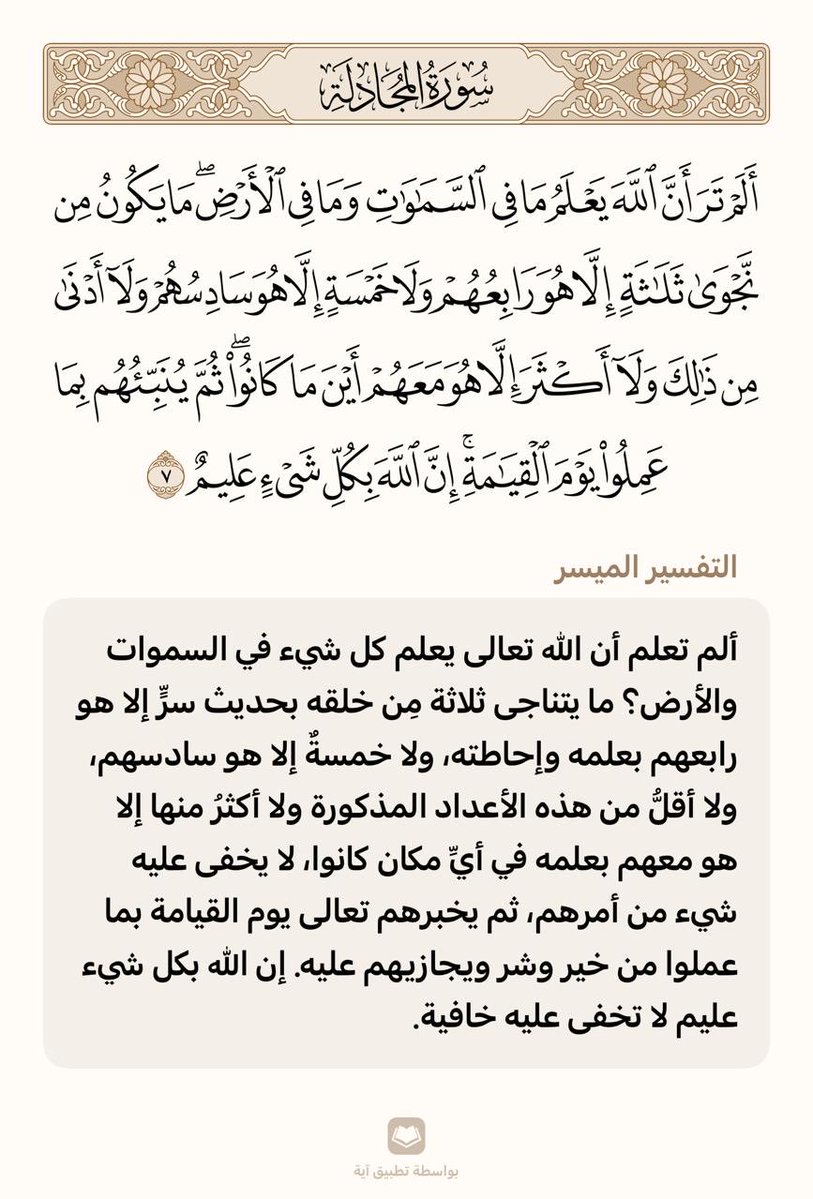 سُورَةُ المُجَادلَةِ
أَلَمۡ تَرَ أَنَّ ٱللَّهَ يَعۡلَمُ مَا فِي ٱلسَّمَٰوَٰتِ وَمَا فِي ٱلۡأَرۡضِۖ مَا يَكُونُ مِن
نَّجۡوَىٰ ثَلَٰثَةٍ إِلَّا هُوَ رَابِعُهُمۡ وَلَا خَمۡسَةٍ إِلَّا هُوَ سَادِسُهُمۡ وَلَآ أَدۡنَىٰ
مِن ذَٰلِكَ وَلَآ أَكۡثَرَ إِلَّا هُوَ مَعَهُمۡ أَيۡنَ مَا كَانُواْۖ ثُمَّ يُنَبِّئُهُم بِمَا
عَمِلُواْ يَوۡمَ ٱلۡقِيَٰمَةِۚ إِنَّ ٱللَّهَ بِكُلِّ شَيۡءٍ عَلِيمٌ ٧
التفسير الميسر
ألم تعلم أن الله تعالى يعلم كل شيء في السموات
والأرض؟ ما يتناجى ثلاثة مِن خلقه بحديث سرٍّ إلا هو
رابعهم بعلمه وإحاطته، ولا خمسةٌ إلا هو سادسهم،
ولا أقلُّ من هذه الأعداد المذكورة ولا أكثرُ منها إلا
هو معهم بعلمه في أيِّ مكان كانوا، لا يخفى عليه
شيء من أمرهم، ثم يخبرهم تعالى يوم القيامة بما
عملوا من خير وشر ويجازيهم عليه. إن الله بكل شيء
عليم لا تخفى عليه خافية.
بواسطة تطبيق آية